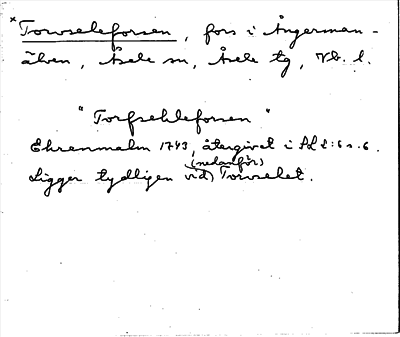 * Torvseleforsen, fors i Ångerman-
älven, Åsele sn, Åsele tg, Vb. l.
"Torfsehleforsen"
Ehrenmalm 1743, återgivet i SLL 2:6 s. 6.
(nedanför)
Ligger tydligen vid) Torvselet.